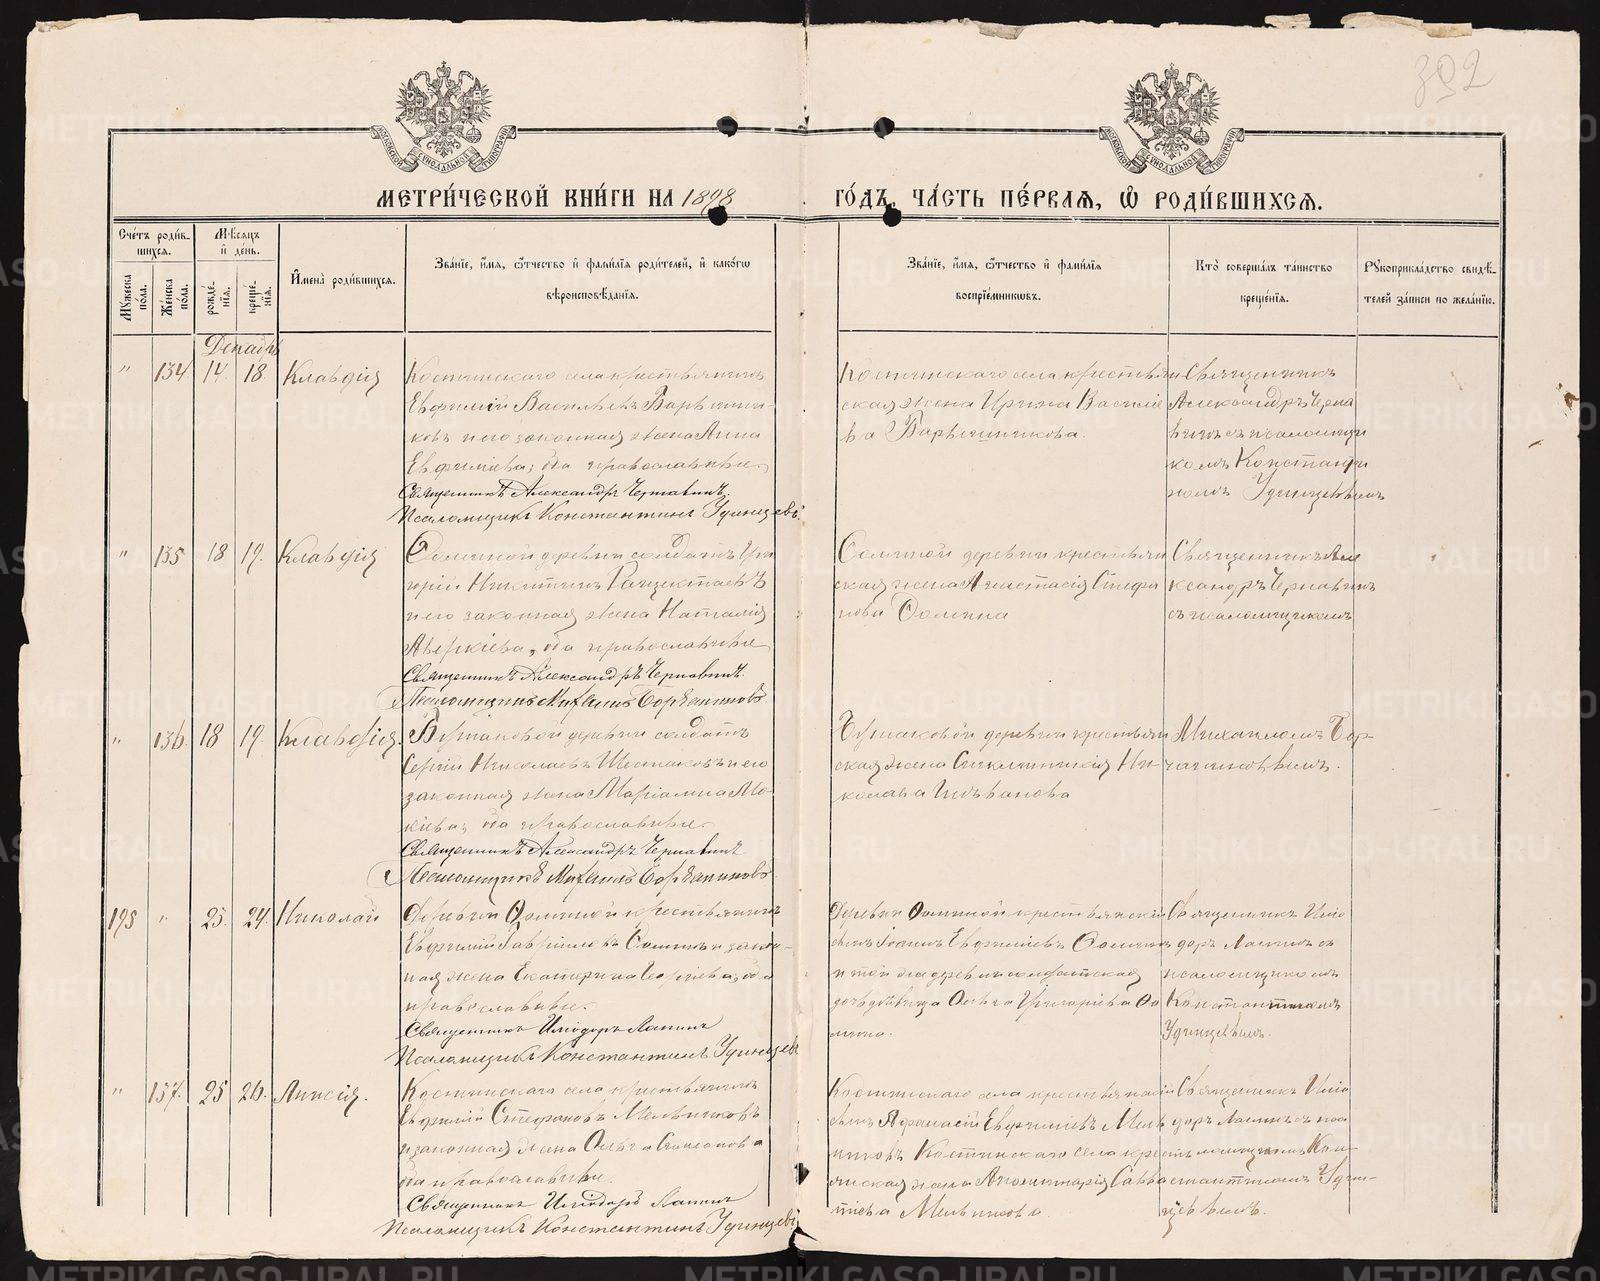 392
МОСКОВСКОЙ СѴНОДАЛЬНОЙ ТИПОГРАФІИ
МОСКОВСКОЙ СѴНОДАЛЬНОЙ ТИПОГРАФІИ
МЕТРИ́ЧЕСКОЙ КНИ́ГИ НА 1898 ГО́ДЪ, ЧА́СТЬ ПЕ́РВАѦ, Ѡ҆ РОДИ́ВШИХСѦ.
Сче́тъ роди́в-
шихся.
Мѣ́сяцъ
и҆ де́нь.
Мꙋ́жеска по́ла.
Же́нска по́ла.
рожде́-нїя.
креще́-нїя.
И҆мена̀ роди́вшихся.
Зва́нїе, и҆́мя, ѻ҆́тчество и҆ фами́лїя роди́телей, и҆ како́гѡ
вѣроисповѣ́данїя.
Зва́нїе, и҆́мя, ѻ҆́тчество и҆ фами́лїя
воспрїе́мникѡвъ.
Кто̀ соверша́лъ та́инство
креще́нїя.
Рꙋкоприкла́дство свидѣ́-
телей за́писи по жела́нїю.
Декабрь
" 134 14. 18. Клавдія
Костинскаго села крестьянинъ
Евфимій Васильевъ Барышни-
ковъ и его законная жена Анна
Евфиміева, оба православные.
Священникъ Александръ Чернавинъ.
Псаломщикъ Константинъ Удинцевъ.
Костинскаго села крестьян
ская жена Ирина Василіе
ва Барышникова.
Священникъ
Александръ Черна
винъ съ псаломщи
комъ Константи
номъ Удинцевымъ
" 135 18 19. Клавдія
Ѳоминой деревни солдатъ Гри
горій Никитинъ
и его законная жена Наталія
Аверкіева, оба православные
Священникъ Александръ Чернавинъ.
Псаломщикъ Михаилъ Борчаниновъ
Ѳоминой деревни крестьян
ская жена Анастасія Стефа
нова Ѳомина
Священникъ Але
ксандръ Чернавинъ
съ псаломщикомъ
" 136. 18 19. Клавдія.
деревни солдатъ
Сергій Николаевъ Шестаковъ и его
законная жена Маріамна Мо-
кіева, оба православные.
Священникъ Александръ Чернавинъ
Псаломщикъ Михаилъ Борчаниновъ
деревни крестьян
ская жена Ни-
колаева
Михаиломъ Бор-
чаниновымъ.
195 " 23. 24. Николай
Деревни Ѳоминой крестьянинъ
Евфимій Гавріиловъ Ѳоминъ и закон-
ная жена Екатерина Георгіева, оба
православные.
Священникъ Илиодоръ Лапинъ
Псаломщикъ Константинъ Удинцевъ
Деревни Ѳоминой крестьянскій
сынъ Іоаннъ Евфиміевъ Ѳоминъ
и той же деревни солдатская
дочь дѣвица Ольга Григоріева Ѳо
мина.
Священникъ Илио
доръ Лапинъ съ
псаломщикомъ
Константиномъ
Удинцевымъ.
" 137. 25 26. Анисія.
Костинскаго села крестьянинъ
Евфимій Стефановъ Мельниковъ
и законная жена Ольга Симеонова
оба православные.
Священникъ Илиодоръ Лапинъ
Псаломщикъ Константинъ Удинцевъ
Костинскаго села крестьянскій
сынъ Афанасій Евфиміевъ Мель
никовъ Костинскаго села кресть
янская жена Аполинарія Савва
тіева Мельникова.
Священникъ Илио
доръ Лапинъ съ пса
ломщикомъ Кон-
стантиномъ Удин-
цевымъ.
METRIKI.GASO-URAL.RU